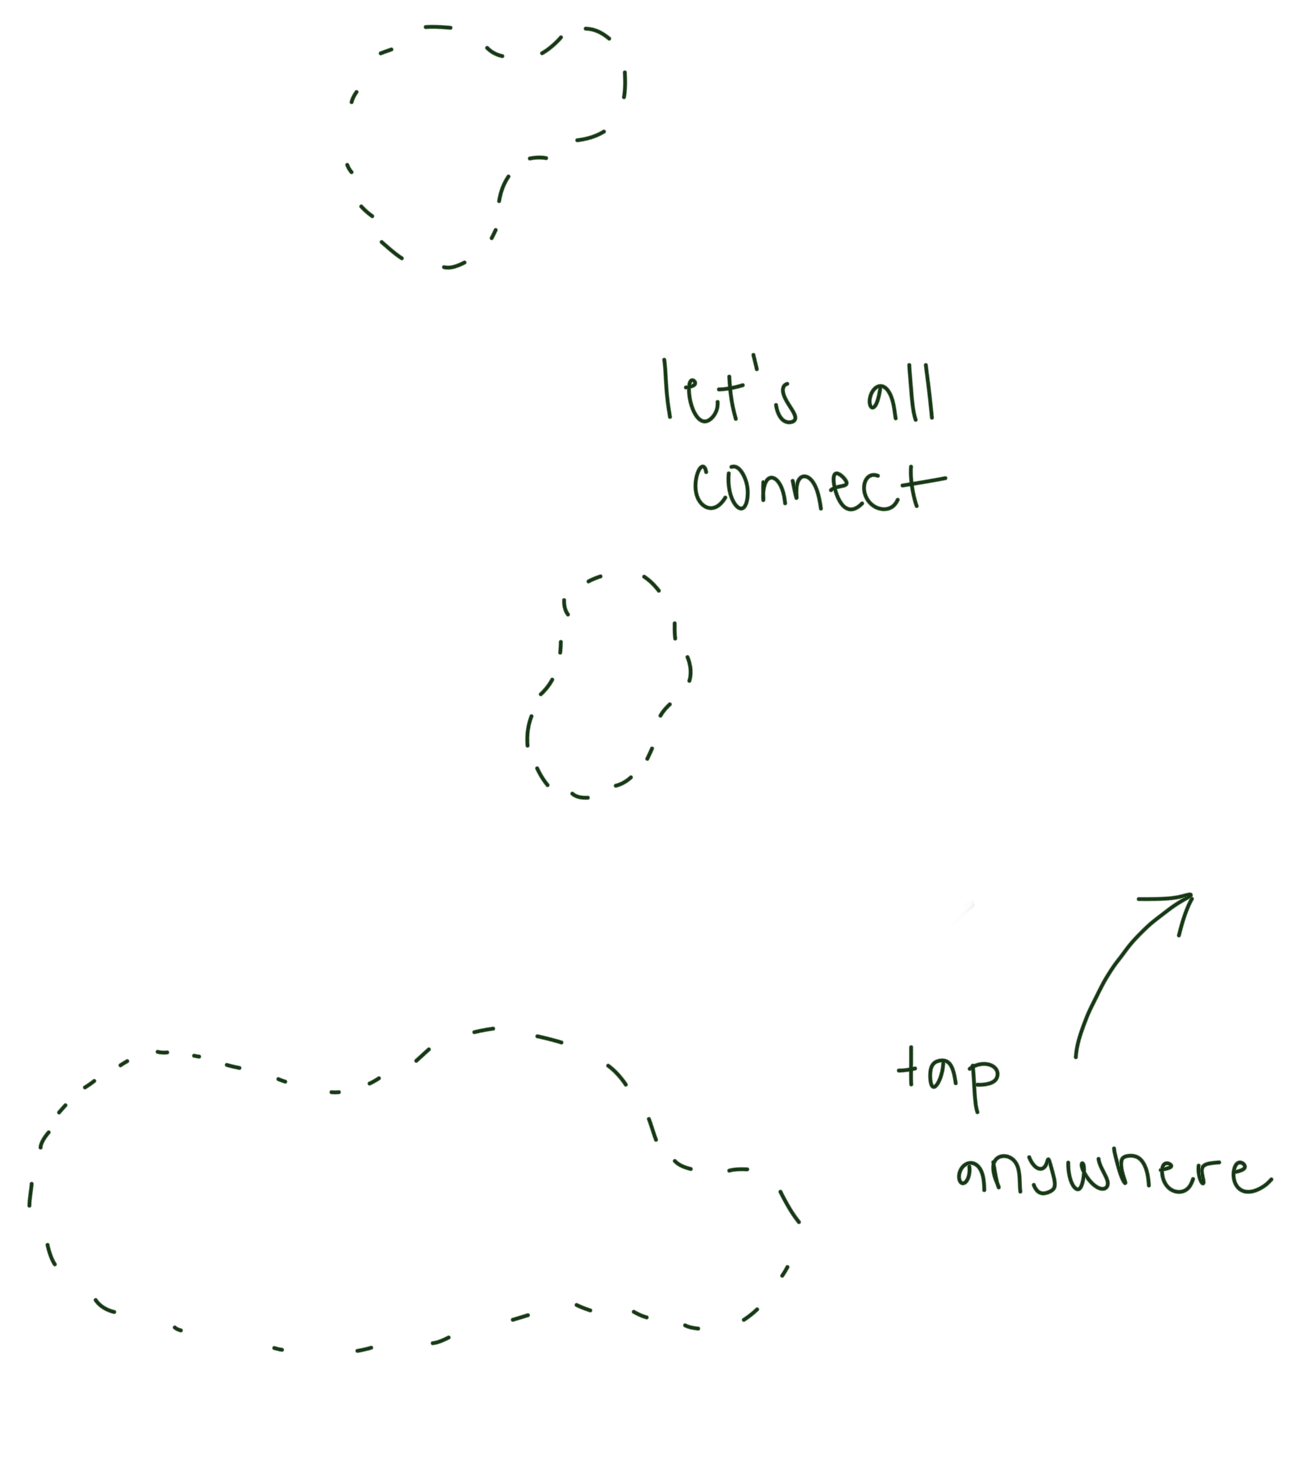 let's all
connect
tap
anywhere